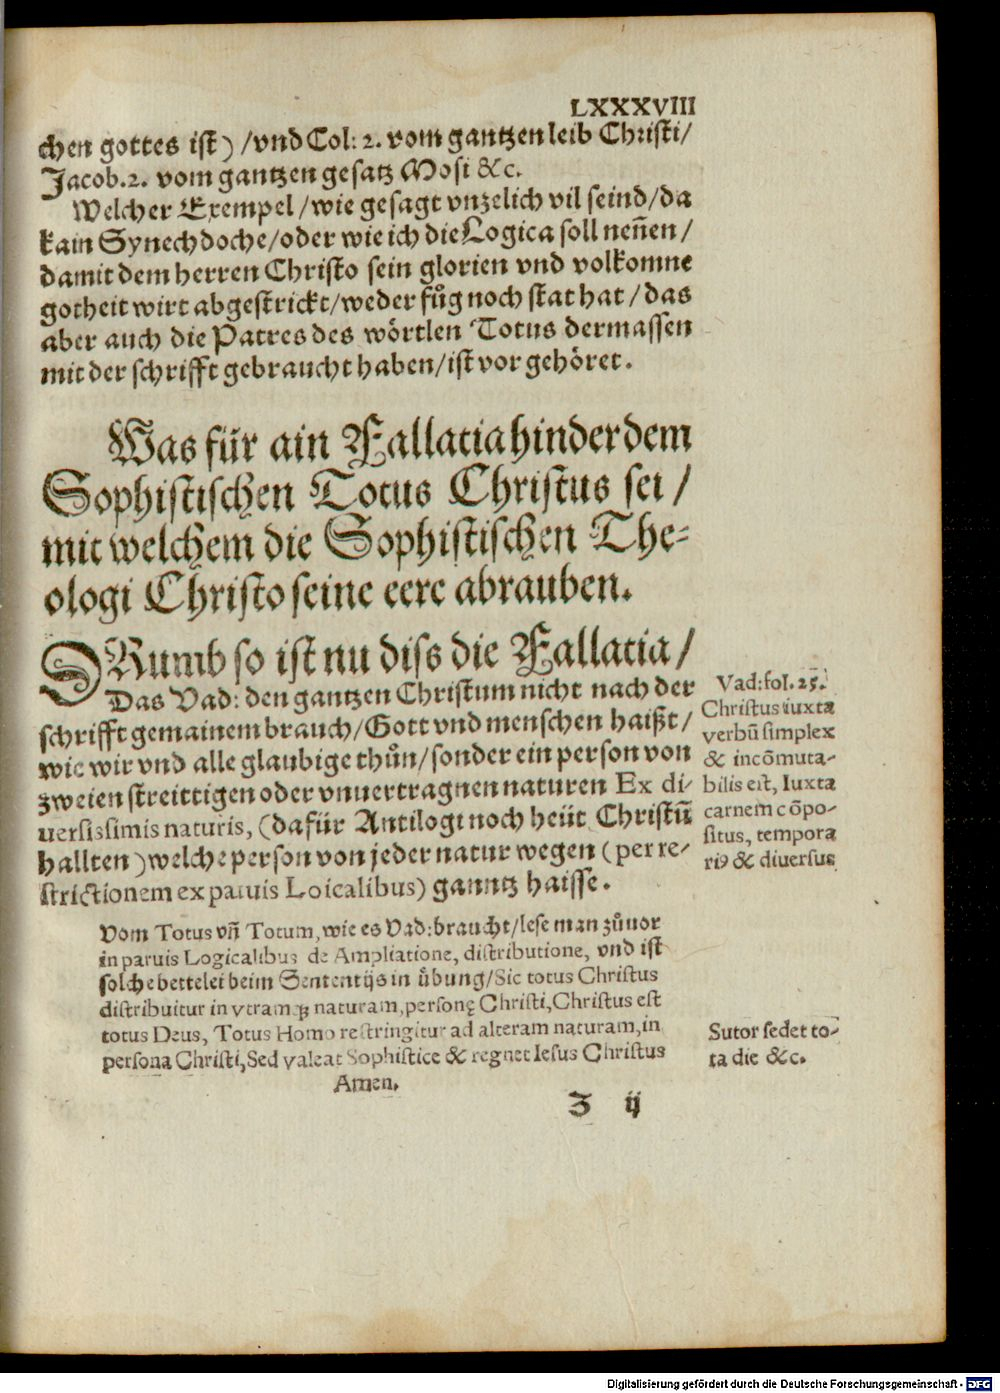 LXXXVIII
chen gottes ist) /vnd Col: 2. vom gantzen leib Christi/
Jacob.2. vom gantzen gesatz Mosi &c.
Welcher Exempel /wie gesagt vnzelich vil seind/da
kain Synechdoche/oder wie ich die Logica soll neñen/
damit dem herren Christo sein glorien vnd volkomne
gotheit wirt abgestrickt/weder fůg noch stat hat /das
aber auch die Patres des wörtlen Totus dermassen
mit der schrifft gebraucht haben/ist vor gehöret.
Was für ain Fallatia hinder dem
Sophistischen Totus Christus sei /
mit welchem die Sophistischen The⸗
ologi Christo seine eere abrauben.
DRumb so ist nu diss die Fallatia/
Das Vad: den gantzen Christum nicht nach der
schrifft gemainem brauch/Gott vnd menschen haißt/
wie wir vnd alle glaubige thůn/sonder ein person von
zweien streittigen oder vnuertragnen naturen Ex di-
uersissimis naturis, (dafür Antilogi noch heüt Christū
hallten) welche person von jeder natur wegen (per re-
strictionem ex paruis Loicalibus) ganntz haisse.
Vad: fol. 25.
Christus iuxta
verbū simplex
& incōmuta-
bilis est, Iuxta
carnem cōpo-
situs, tempora
ri9 & diuersus
Vom Totus vñ Totum, wie es Vad: braucht/lese man zůuor
in paruis Logicalibus de Ampliatione, distributione, vnd ist
solche bettelei beim Sententijs in ůbung/Sic totus Christus
distribuitur in vtramꝙ naturam, personę Christi, Christus est
totus Deus, Totus Homo restringitur ad alteram naturam, in
persona Christi, Sed valeat Sophistice & regnet Iesus Christus
Amen.
Sutor sedet to-
ta die &c.
Z ij
Digitalisierung gefördert durch die Deutsche Forschungsgemeinschaft - DFG